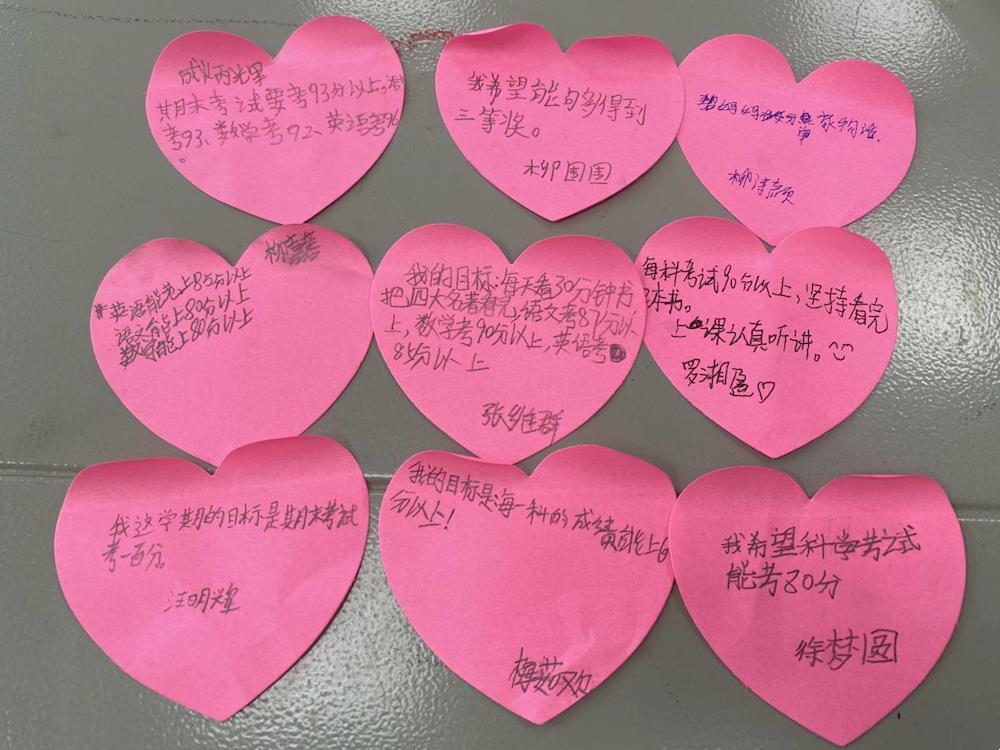 期末考试要考93分以上,语
考93、数学考92、英语考96
。
我希望能够多得到
三等奖。
柳围围
柳诗颜
柳
英语能考上85分以上
语文能上80分以上
数学能上80分以上
我的目标:每天看30分钟书
把四大名著看完,语文考87分以
上,数学考90分以上,英语考
85分以上
张维群
每科考试90分以上,坚持看完
2本书。
上课认真听讲。
罗湘盈♡
我这学期的目标是期末考试
考一百分
汪明煌
我的目标是:每一科的成绩能上6
分以上!
梅茹欢
我希望科学考试
能考80分
徐梦圆